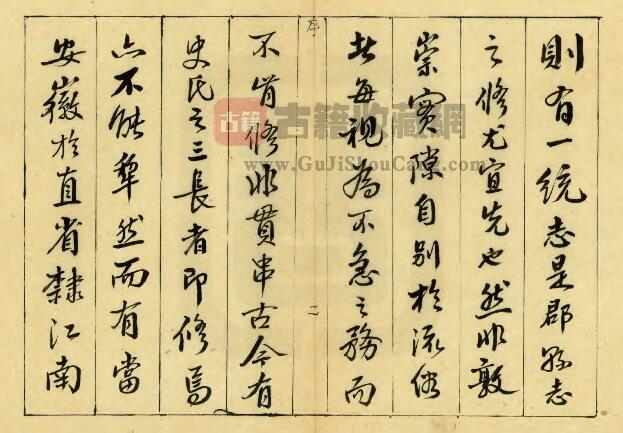 則有一統志是郡縣志
之修尤宜先也然非敦
崇實際自別於流俗
者每視為不急之務而
序
二
不肯修非貫串古今有
史氏之三長者即修焉
亦不能犁然而有當
安徽於直省隸江南
古籍
古籍收藏網
www.GuJiShouCang.com